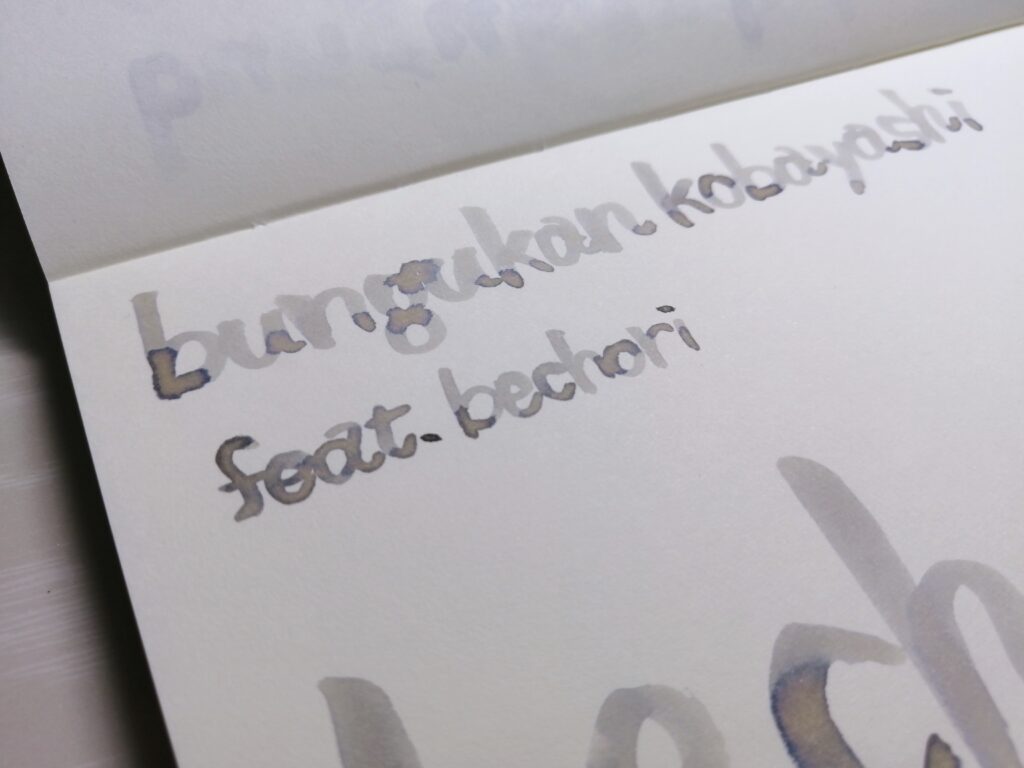 bungukan kobayashi
feat. bechori